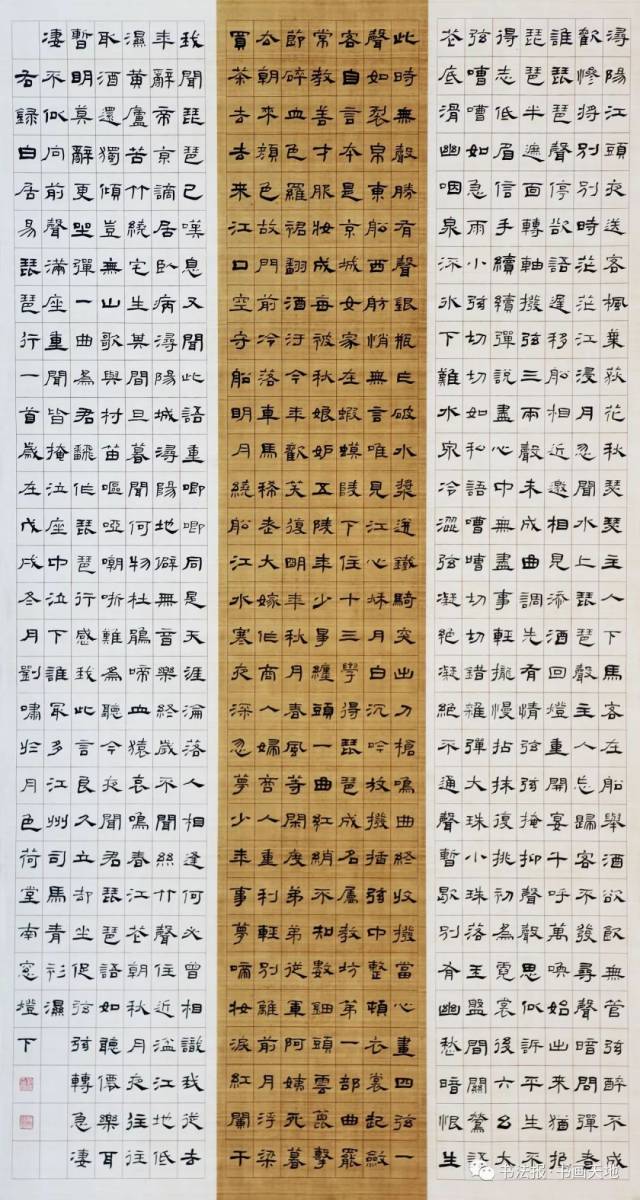 潯陽江頭夜送客楓葉荻花秋瑟瑟主人下馬客在船舉酒欲飲無管弦醉不成
歡慘將別別時茫茫江浸月忽聞水上琵琶聲主人忘歸客不發尋聲暗問彈者
誰琵琶聲停欲語遲移船相近邀相見添酒回燈重開宴千呼萬喚始出來猶抱
琵琶半遮面轉軸撥弦三兩聲未成曲調先有情弦弦掩抑聲聲思似訴平生不
得志低眉信手續續彈說盡心中無盡事輕攏慢拈抹復挑初為霓裳後六幺大
弦嘈嘈如急雨小弦切切如私語嘈嘈切切錯雜彈大珠小珠落玉盤間關鶯語
花底滑幽咽泉流冰下難水泉冷澀弦凝絕凝絕不通聲暫歇別有幽愁暗恨生
此時無聲勝有聲銀瓶乍破水漿迸鐵騎突出刀槍鳴曲終收撥當心畫四弦一
聲如裂帛東船西舫悄無言唯見江心秋月白沉吟放撥插弦中整頓衣裳起斂
容自言本是京城女家在蝦蟆陵下住十三學得琵琶成名屬教坊第一部曲罷
常教善才服妝成每被秋娘妒五陵年少爭纏頭一曲紅綃不知數鈿頭雲篦擊
節碎血色羅裙翻酒污今年歡笑復明年秋月春風等閑度弟走從軍阿姨死暮
去朝來顏色故門前冷落車馬稀老大嫁作商人婦商人重利輕別離前月浮梁
買茶去去來江口空守船明月繞船江水寒夜深忽夢少年事夢啼妝淚紅闌干
我聞琵琶已嘆息又聞此語重唧唧同是天涯淪落人相逢何必曾相識我從去
年辭帝京謫居臥病潯陽城潯陽地僻無音樂終歲不聞絲竹聲住近湓江地低
濕黃蘆苦竹繞宅生其間旦暮聞何物杜鵑啼血猿哀鳴春江花朝秋月夜往往
取酒還獨傾豈無山歌與村笛嘔啞嘲哳難為聽今夜聞君琵琶語如聽僊樂耳
暫明莫辭更坐彈一曲為君翻作琵琶行感我此言良久立卻坐促弦弦轉急淒
淒不似向前聲滿座重聞皆掩泣座中泣下誰最多江州司馬青衫濕
右錄白居易琵琶行一首歲在戊戌冬月劉嘯於月色荷堂南窗燈下
书法报·书画天地